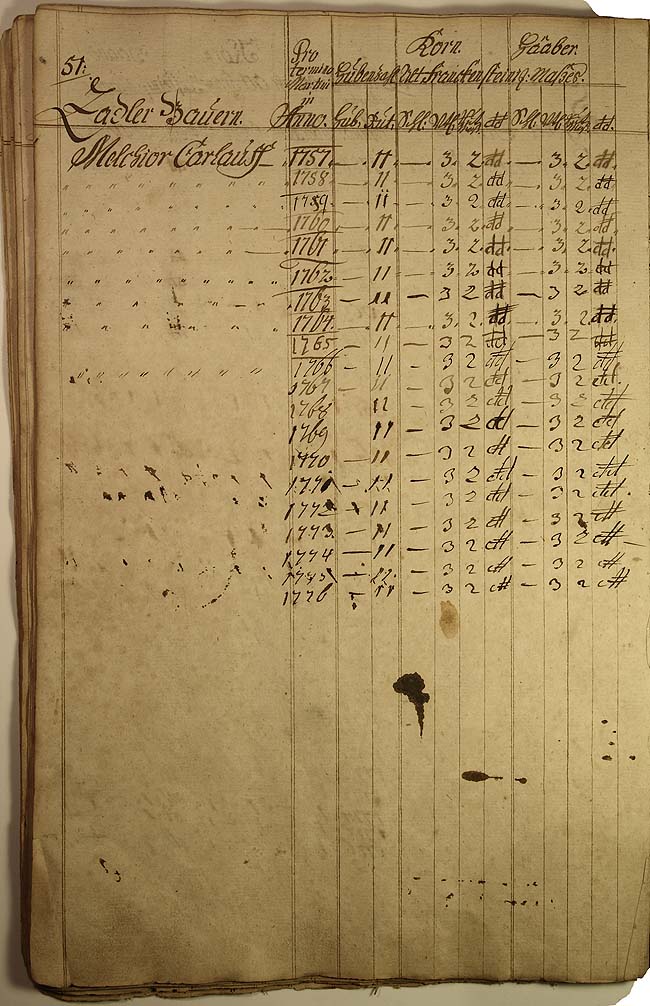 51.
Pro termino Martini in Anno.
Korn. Haaber.
Alt Franckensteing: Masses.
Zadler Bauern.
Melchior Carlauff 1757. — 11 — 3. 2 dd — 3. 2 dd
" 1758 — 11 — 3 2 dd — 3 2 dd
" 1759 — 11 — 3 2 dd — 3 2 dd
" 1760 — 11 — 3 2 dd — 3 2 dd
" 1761 — 11 — 3. 2. dd — 3. 2. dd
" 1762 — 11 — 3 2 dd — 3 2 dd
" 1763 — 11 — 3 2 dd — 3 2 dd
" 1764 — 11 — 3. 2. dd — 3. 2. dd
1765 — 11 — 3 2 dd — 3 2 dd
" 1766 — 11 — 3 2 dd — 3 2 dd
1767 — 11 — 3 2 dd — 3 2 dd
1768 11 — 3 2 dd — 3 2 dd
1769 11 — 3 2 dd — 3 2 dd
1770 — 11 — 3 2 dd — 3 2 dd
1771 — 11 — 3 2 dd — 3 2 dd
1772 — 11 — 3 2 dd — 3 2 dd
1773 — 11 — 3 2 dd — 3 2 dd
1774 — 11 — 3 2 dd — 3 2 dd
1775 — 11 — 3 2 dd — 3 2 dd
1776 — 11 — 3 2 dd — 3 2 dd